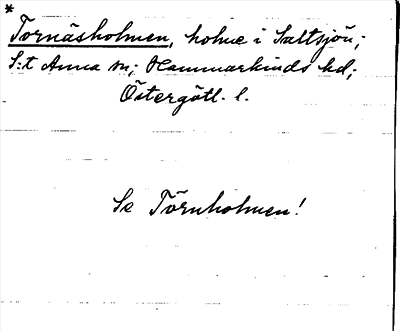 *
Tornäsholmen, holme i Saltsjön;
S:t Anna sn; Hammarkinds hd;
Östergötl. l.
Se Törnholmen!